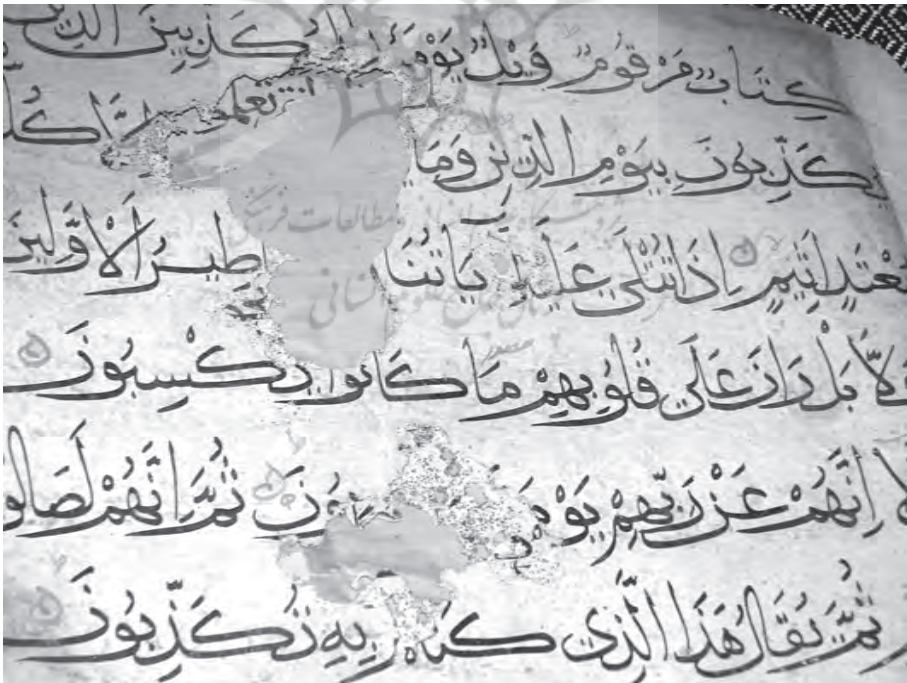 كِتَابٌ مَرْقُومٌ وَيْلٌ الَّذِينَ
يُكَذِّبُونَ بِيَوْمِ الدِّينِ وَمَا اِلَّا كُلُّ
اَثِيمٍ اِذَا تُتْلَى عَلَيْهِ يَاتُنَا طِيرُ الْاَوَّلِينَ
كَلَّا بَلْ رَانَ عَلَى قُلُوبِهِمْ مَا كَانُوا يَكْسِبُونَ
اِنَّهُمْ عَنْ رَبِّهِمْ ثُمَّ اِنَّهُمْ لَصَالُو
ثُمَّ يُقَالُ هَذَا الَّذِي بِهِ تُكَذِّبُونَ